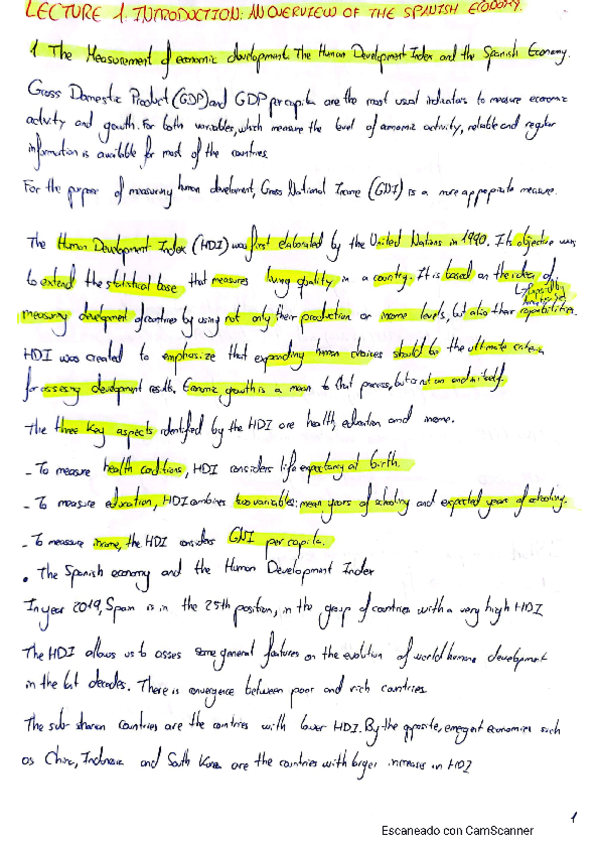 LECTURE 1. INTRODUCTION: AN OVERVIEW OF THE SPANISH ECONOMY.
1 The Measurement of economic development. The Human Development Index and the Spanish Economy.
Gross Domestic Product (GDP) and GDP per capita are the most usual indicators to measure economic
activity and growth. For both variables, which measure the level of economic activity, reliable and regular
information is available for most of the countries.
For the purpose of measuring human development, Gross National Income (GDI) is a more appropiate measure.
The Human Development Index (HDI) was first elaborated by the United Nations in 1990. Its objective was
to extend the statistical base that measures living quality in a country. It is based on the idea of
measuring development of countries by using not only their production or income levels, but also their
HDI was created to emphasize that expanding human choices should be the ultimate criteria
for assessing development results. Economic growth is a mean to that process, but is not an end in itself.
The three key aspects identified by the HDI are health, education and income.
- To measure health conditions, HDI considers life expectancy at birth.
- To measure education, HDI combines two variables: mean years of schooling and expected years of schooling.
- To measure income, the HDI considers GNI per capita.
• The Spanish economy and the Human Development Index
In year 2019, Spain is in the 25th position, in the group of countries with a very high HDI
The HDI allows us to asses some general features on the evolution of world human development
in the last decades. There is convergence between poor and rich countries.
The sub-sharan countries are the countries with lower HDI. By the opposite, emergent economies such
as China, Indonesia and South Korea are the countries with larger increase in HDI
1
Escaneado con CamScanner